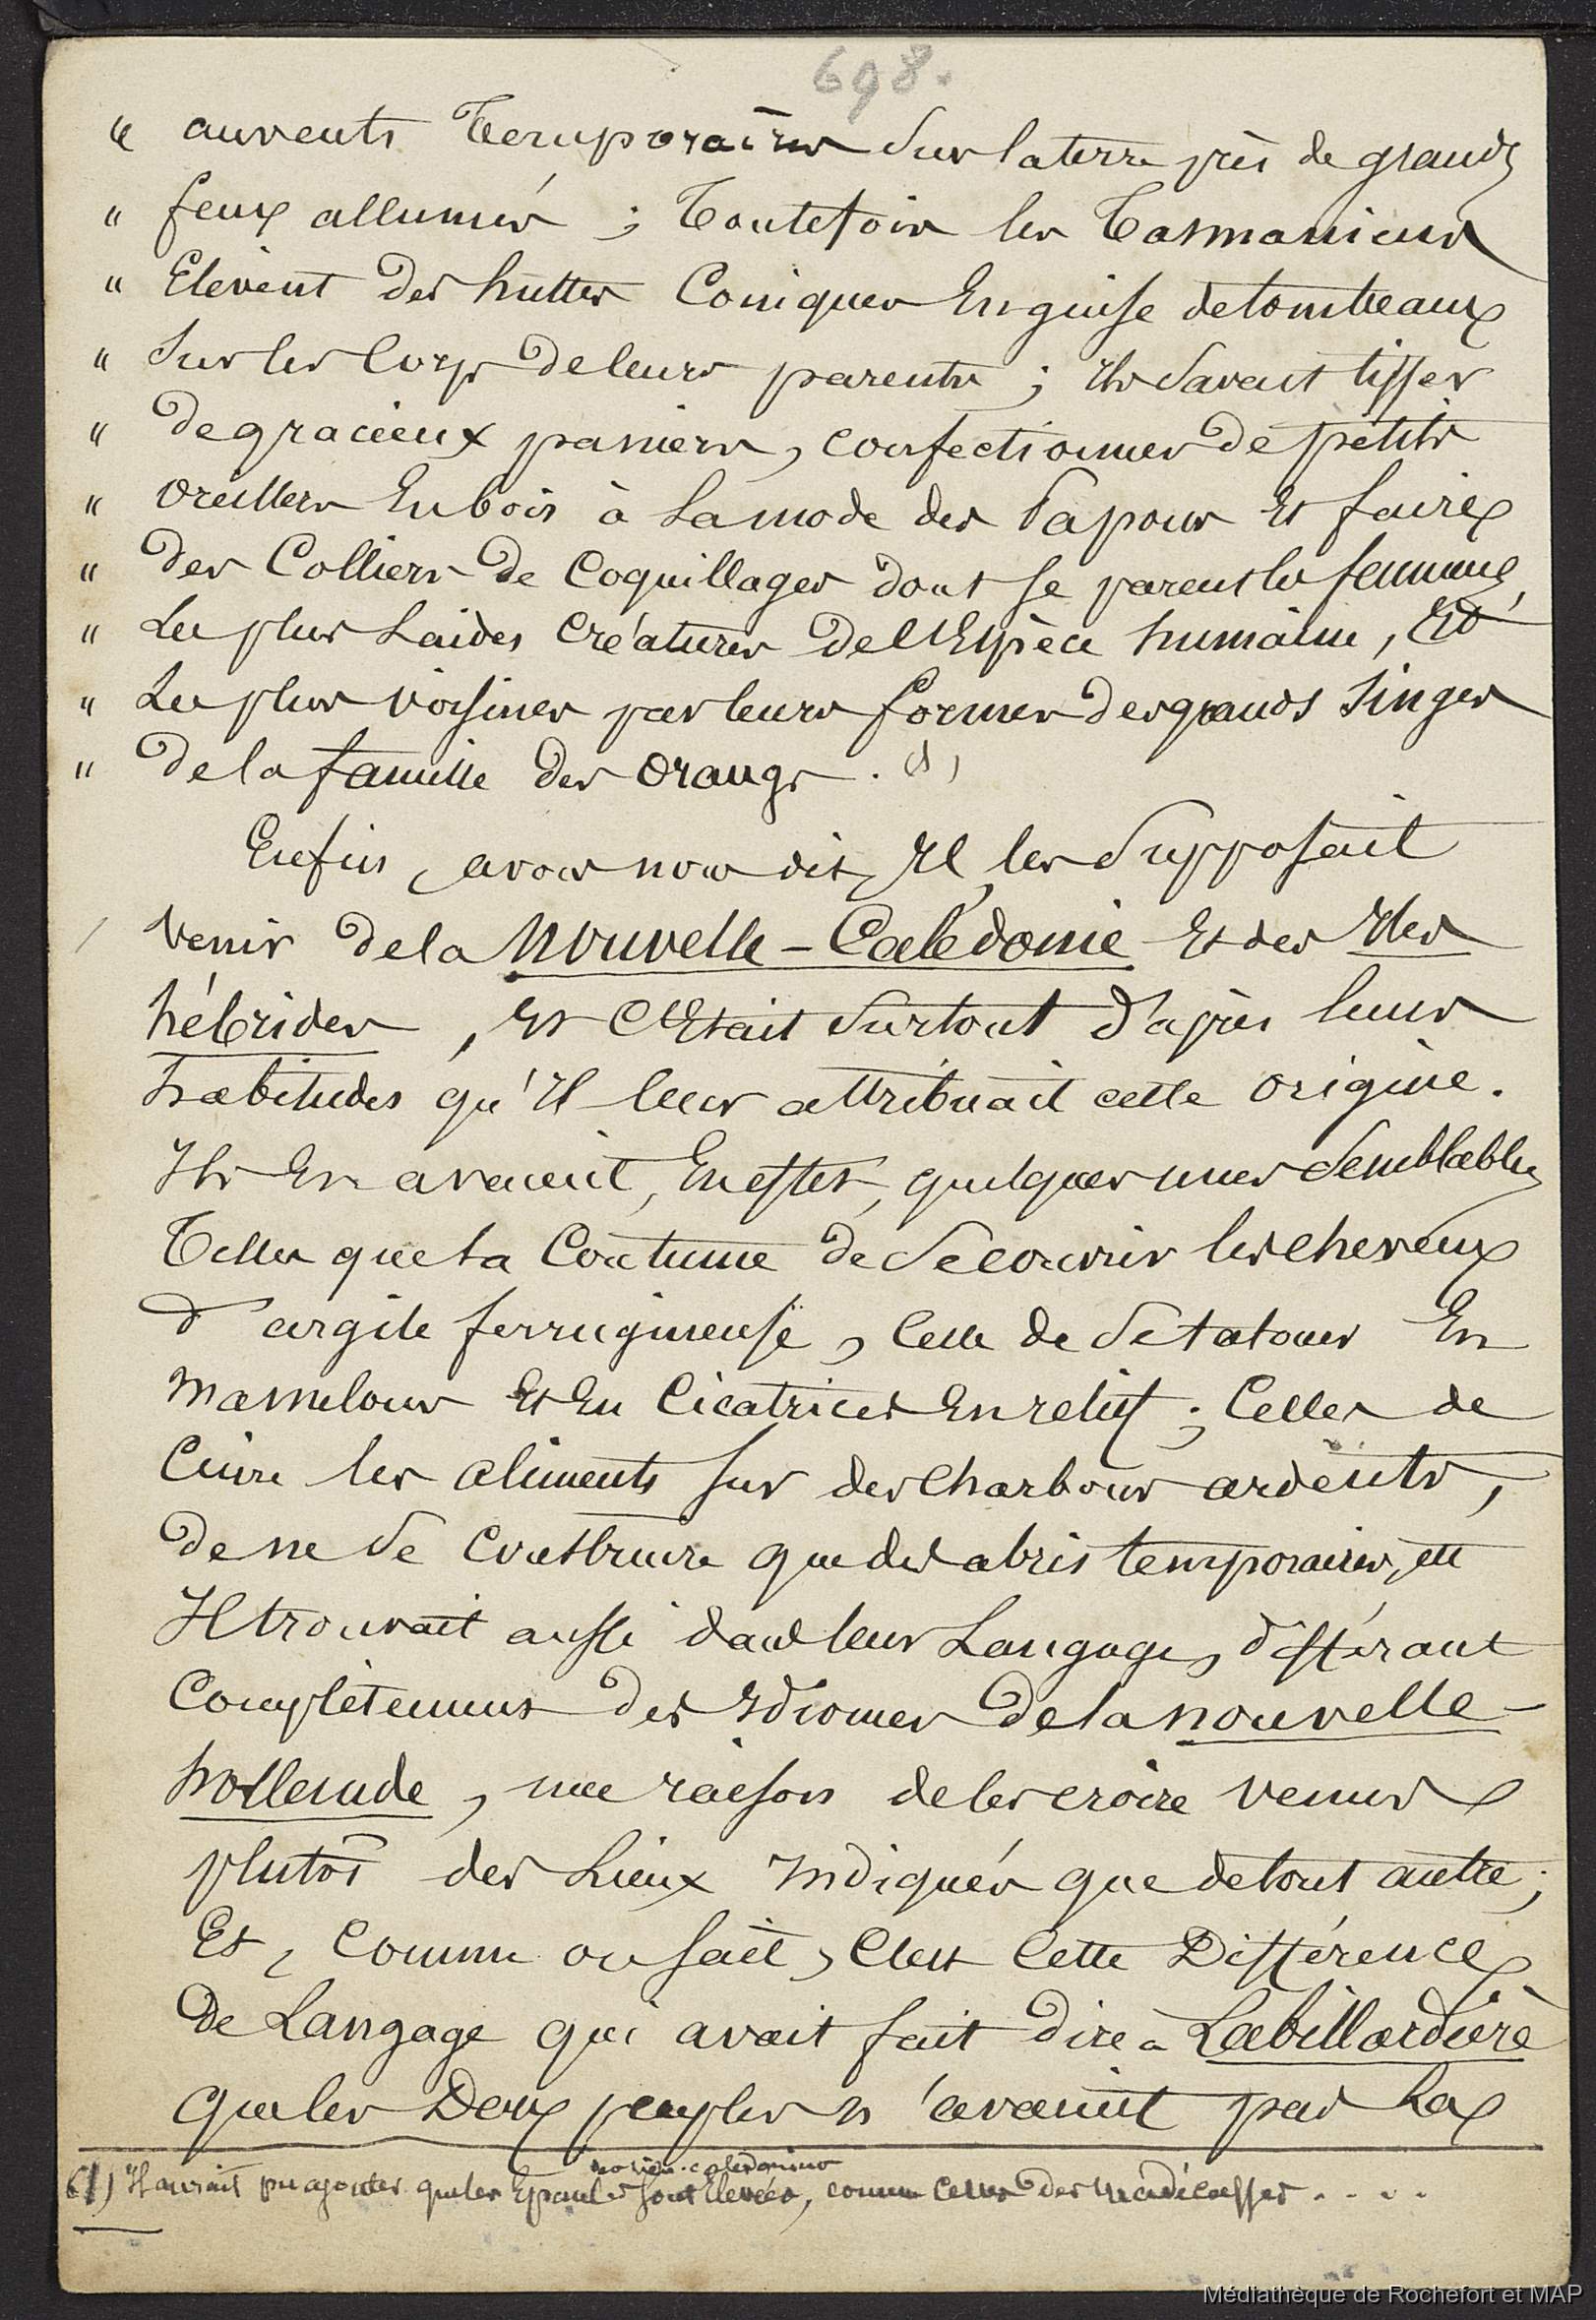 698.
" auvents Temporaires Sur la terre près de grands
" feux allumés ; Toutefois les Tasmaniens
" Elèvent des huttes Coniques En guise de tombeaux
" Sur les Corps de leurs parents ; Ils Savent tisser
" de gracieux paniers, confectionner de petits
" oreillers En bois à La mode des Papous Et faire
" des Colliers de Coquillages dont se parent les femmes,
" Les plus Laides Créatures de l'Espèce humaine, Et
" Les plus voisines par leurs formes des grands Singes
" de la famille des Orangs . (1)
Enfin, avons nous dit, Il les Supposait
venir de la Nouvelle-Calédonie Et des Iles
hébrides, Et C'Etait Surtout d'après leurs
habitudes qu'Il leur attribuait cette origine.
Ils En avaient, En effet, quelques unes Semblables
Telles que La Coutume de Se couvrir les cheveux
d'argile ferrugineuse, Celle de Se tatouer En
mamelons Et En Cicatrices En relief ; Celles de
Cuire les aliments sur des charbons ardents,
de ne Se Construire que des abris temporaires, etc
Il trouvait aussi dans leur Langage, différant
Complètement des Idiomes de la nouvelle-
hollande, une raison de les croire venus
plutôt des Lieux Indiqués que de tout autre ;
Et, Comme on sait, C'est Cette Différence
de Langage qui avait fait dire à Labillardière
que les Deux peuples n'avaient pas La
(1) Il aurait pu ajouter que les Epaules
neo-calédoniens
sont Elevées, comme Celles des Madécasses . . . .
Médiathèque de Rochefort et MAP